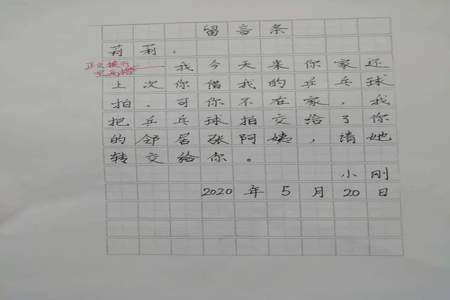 留言条
莉莉.
我今天来你家还
上次你借我的乒乓球
拍.可你不在家.我
把乒乓球拍交给了你
的邻居张阿姨，请她
转交给你。
小刚
2020年5月20日